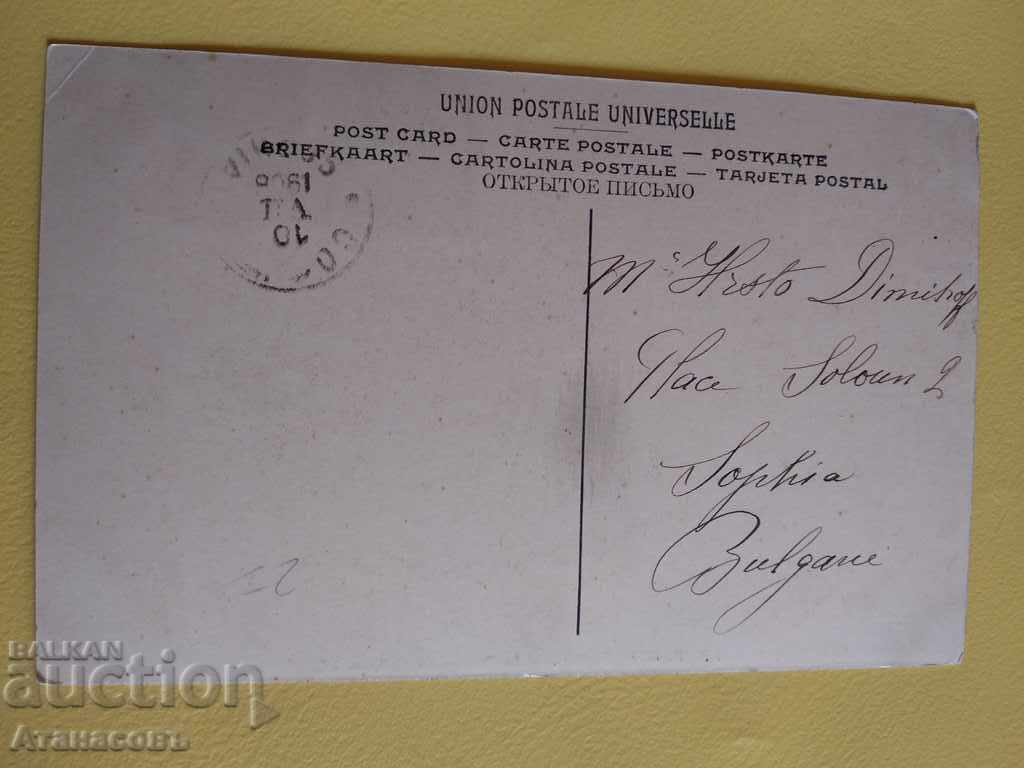 UNION POSTALE UNIVERSELLE
POST CARD — CARTE POSTALE — POSTKARTE
BRIEFKAART — CARTOLINA POSTALE — TARJETA POSTAL
ОТКРЫТОЕ ПИСЬМО
Mr Hrsto Dimitroff
Place Soloun 2
Sophia
Bulgarie
10
VII
BALKAN
auction
Атанасовъ